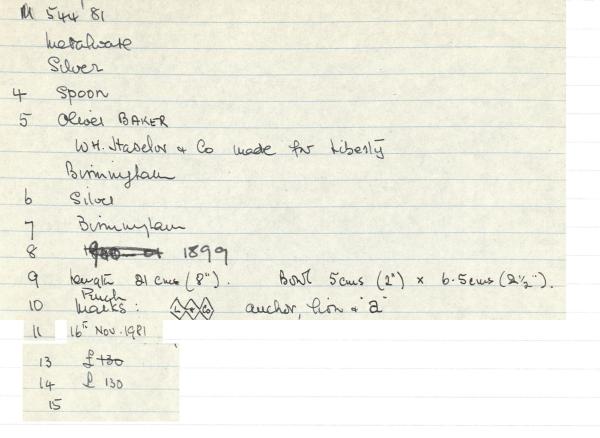 M 544 '81
Metalware
Silver
4 Spoon
5 Oliver BAKER
W.H. Haseler & Co made for Liberty
Birmingham
6 Silver
7 Birmingham
8 1899
9 Length 21 cms (8"). Bowl 5cms (2") x 6.5cms (2½").
10 Punch Marks: L & Co anchor, lion & "a"
11 16th Nov. 1981
13 £130
14 £ 130
15